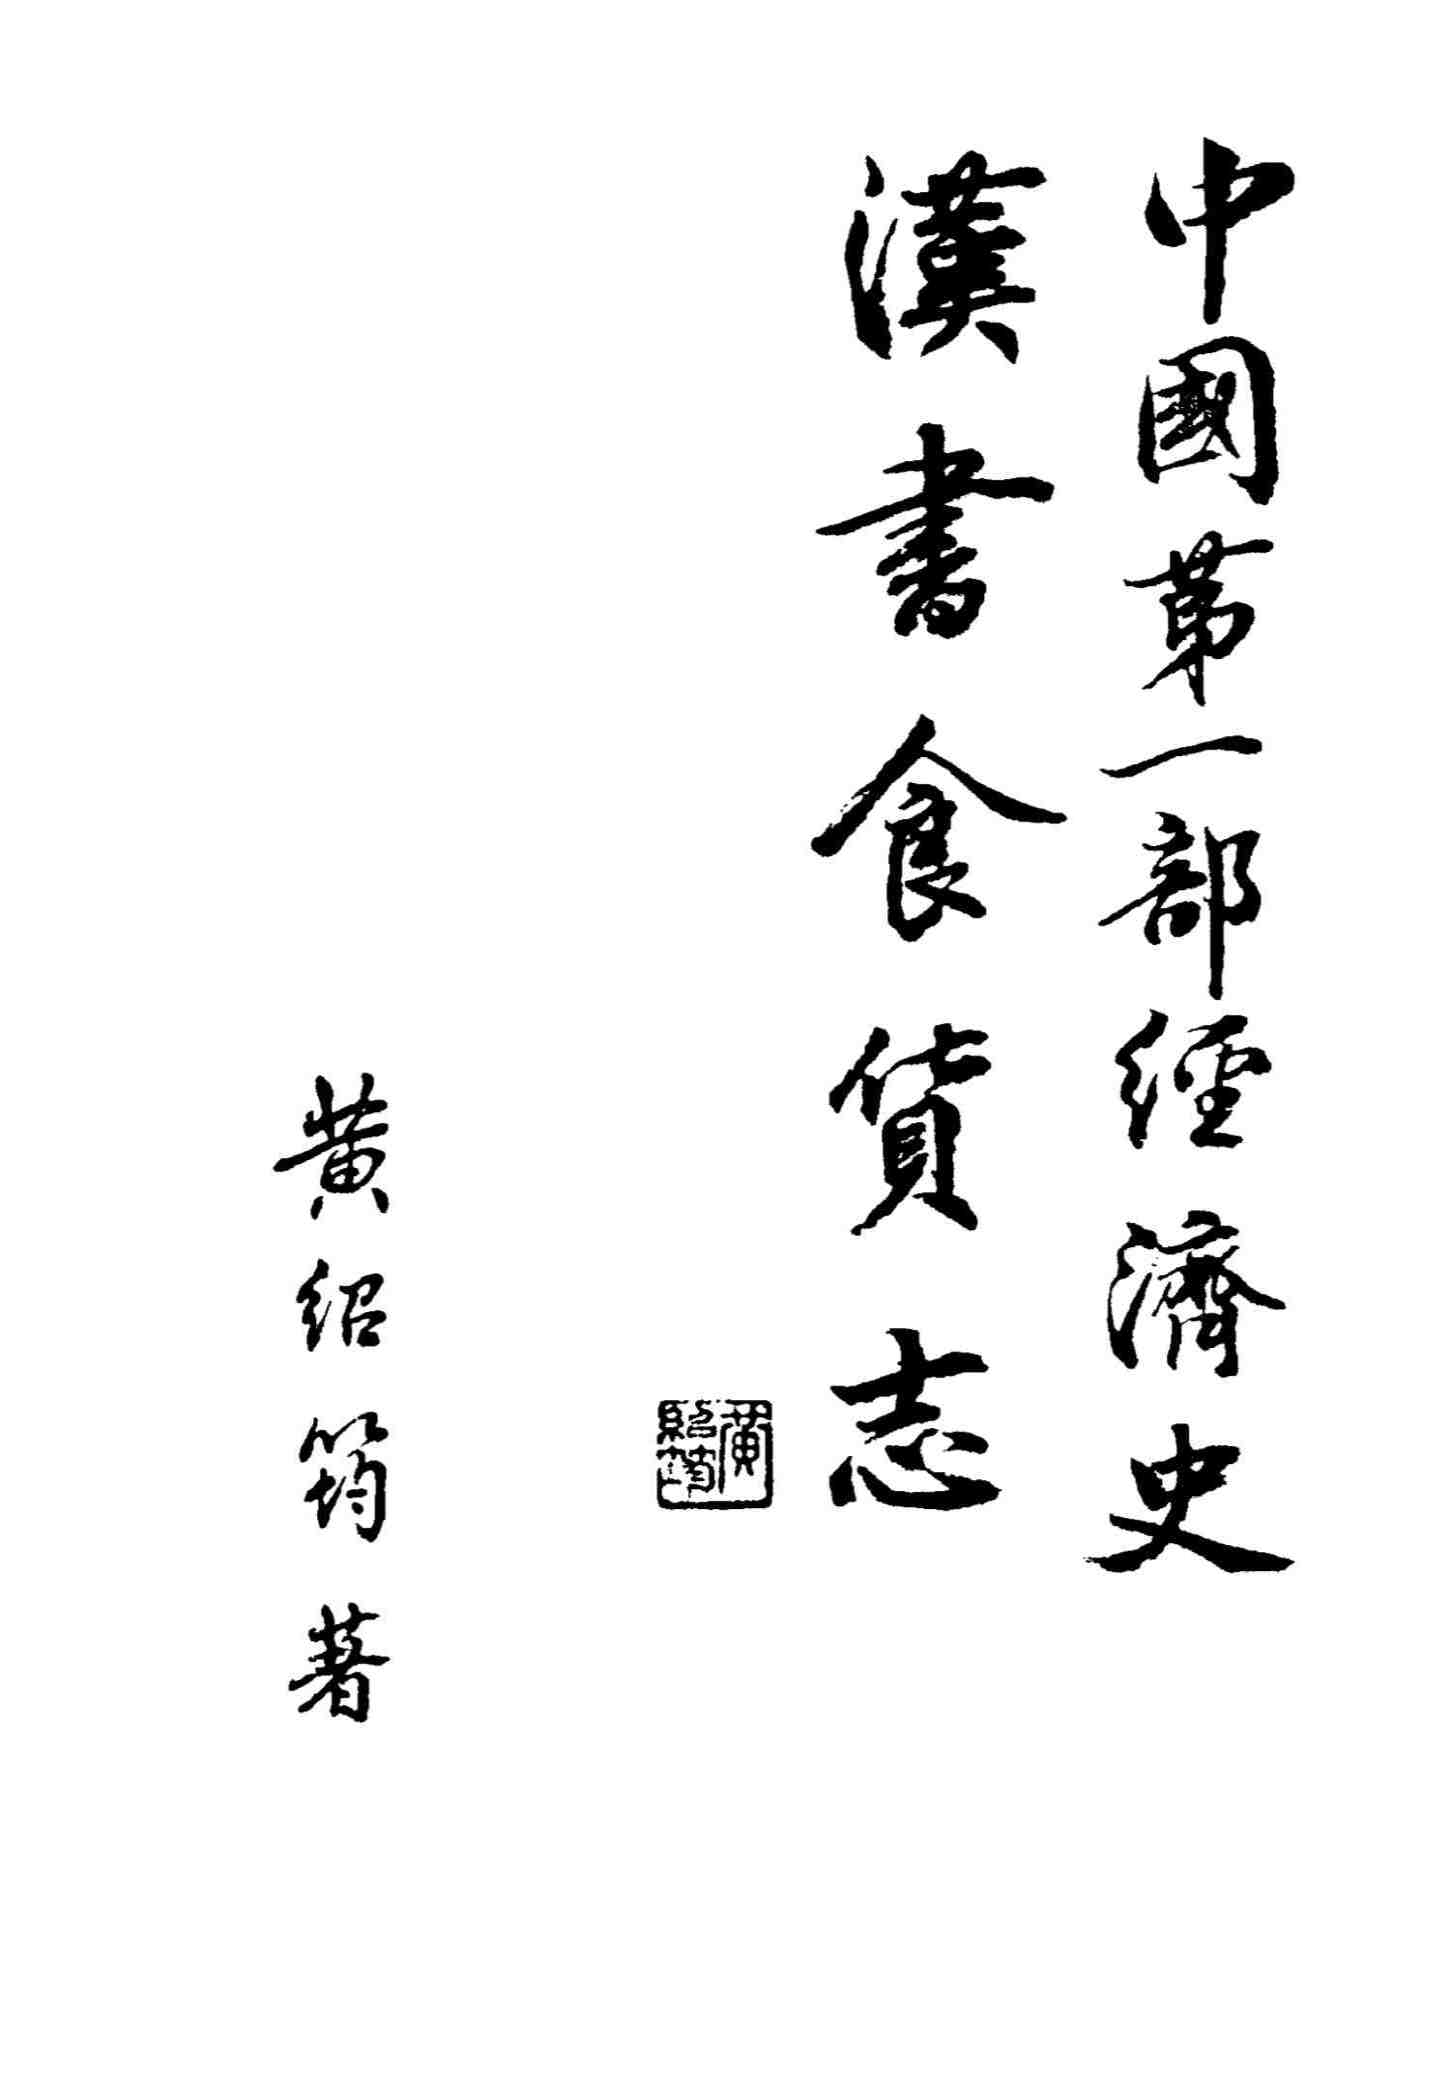 中國第一部經濟史
漢書食貨志
黃紹筠
黃紹筠著